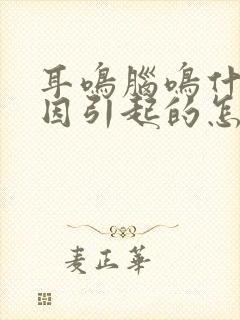 耳鳴腦鳴什
因引起的怎
麦正華